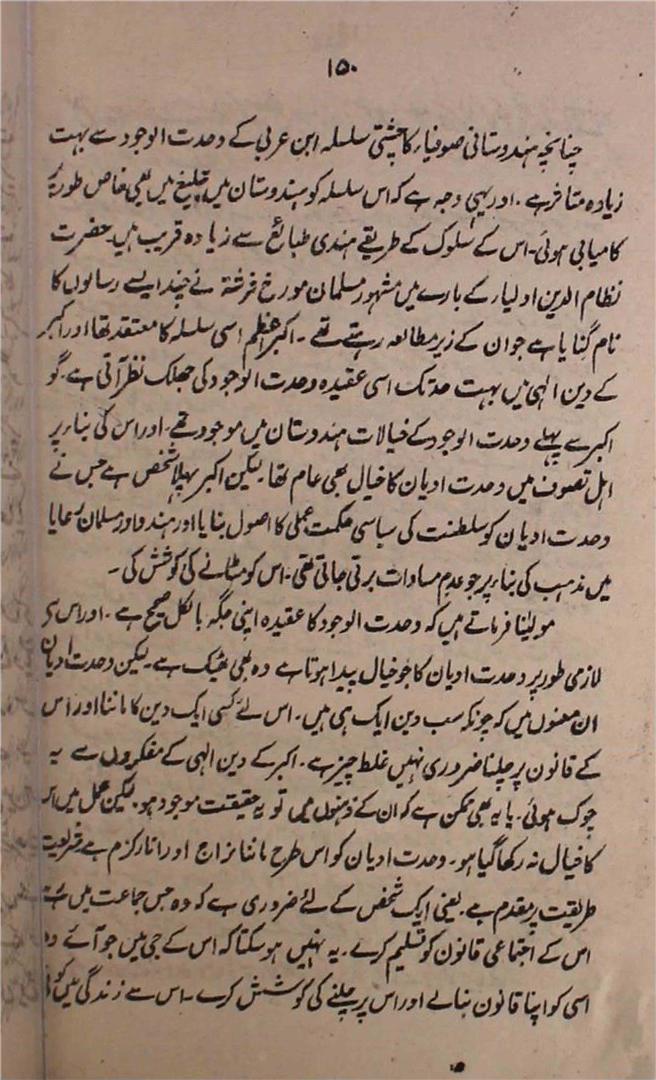 ۱۵۰
چنانچہ ہندوستانی صوفیاء کا چشتی سلسلہ ابن عربی کے وحدت الوجود سے بہت
زیادہ متاثر ہے۔ اور یہی وجہ ہے کہ اس سلسلہ کو ہندوستان میں تبلیغ میں بھی خاص طور پر
کامیابی ہوئی۔ اس کے سلوک کے طریقے ہندی طبائع سے زیادہ قریب ہیں۔ حضرت
نظام الدین اولیاء کے بارے میں مشہور مسلمان مورخ فرشتہ نے چند ایسے رسالوں کا
نام گنایا ہے جو ان کے زیر مطالعہ رہتے تھے۔ اکبر اعظم اسی سلسلہ کا معتقد تھا اور اکبر
کے دین الٰہی میں بہت حد تک اسی عقیدہ وحدت الوجود کی جھلک نظر آتی ہے۔ گو
اکبر سے پہلے وحدت الوجود کے خیالات ہندوستان میں موجود تھے۔ اور اس کی بناء پر
اہل تصوف میں وحدت ادیان کا خیال بھی عام تھا۔ لیکن اکبر پہلا شخص ہے جس نے
وحدت ادیان کو سلطنت کی سیاسی حکمت عملی کا اصول بنایا اور ہندو اور مسلمان رعایا
میں مذہب کی بناء پر جو عدم مساوات برتی جاتی تھی۔ اس کو مٹانے کی کوشش کی۔
مولینا فرماتے ہیں کہ وحدت الوجود کا عقیدہ اپنی جگہ بالکل صحیح ہے۔ اور اس سے
لازمی طور پر وحدت ادیان کا جو خیال پیدا ہوتا ہے وہ بھی ٹھیک ہے۔ لیکن وحدت ادیان
ان معنوں میں کہ چونکہ سب دین ایک ہی ہیں۔ اس لئے کسی ایک دین کا ماننا اور اس
کے قانون پر چلنا ضروری نہیں غلط چیز ہے۔ اکبر کے دین الٰہی کے مفکروں سے یہ
چوک ہوئی۔ یا یہ بھی ممکن ہے کہ ان کے ذہنوں میں تو یہ حقیقت موجود ہو۔ لیکن عمل میں اس
کا خیال نہ رکھا گیا ہو۔ وحدت ادیان کو اس طرح ماننا نراج اور انارکزم ہے شریعت
طریقت پر مقدم ہے۔ یعنی ایک شخص کے لئے ضروری ہے کہ وہ جس جماعت میں رہے
اس کے اجتماعی قانون کو تسلیم کرے۔ یہ نہیں ہو سکتا کہ اس کے جی میں جو آئے وہ
اسی کو اپنا قانون بنالے اور اس پر چلنے کی کوشش کرے۔ اس سے زندگی میں کوئی